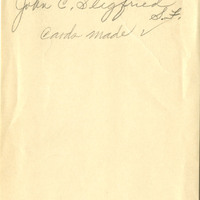 John C. Siegfried
S.F.
Cards made ✓